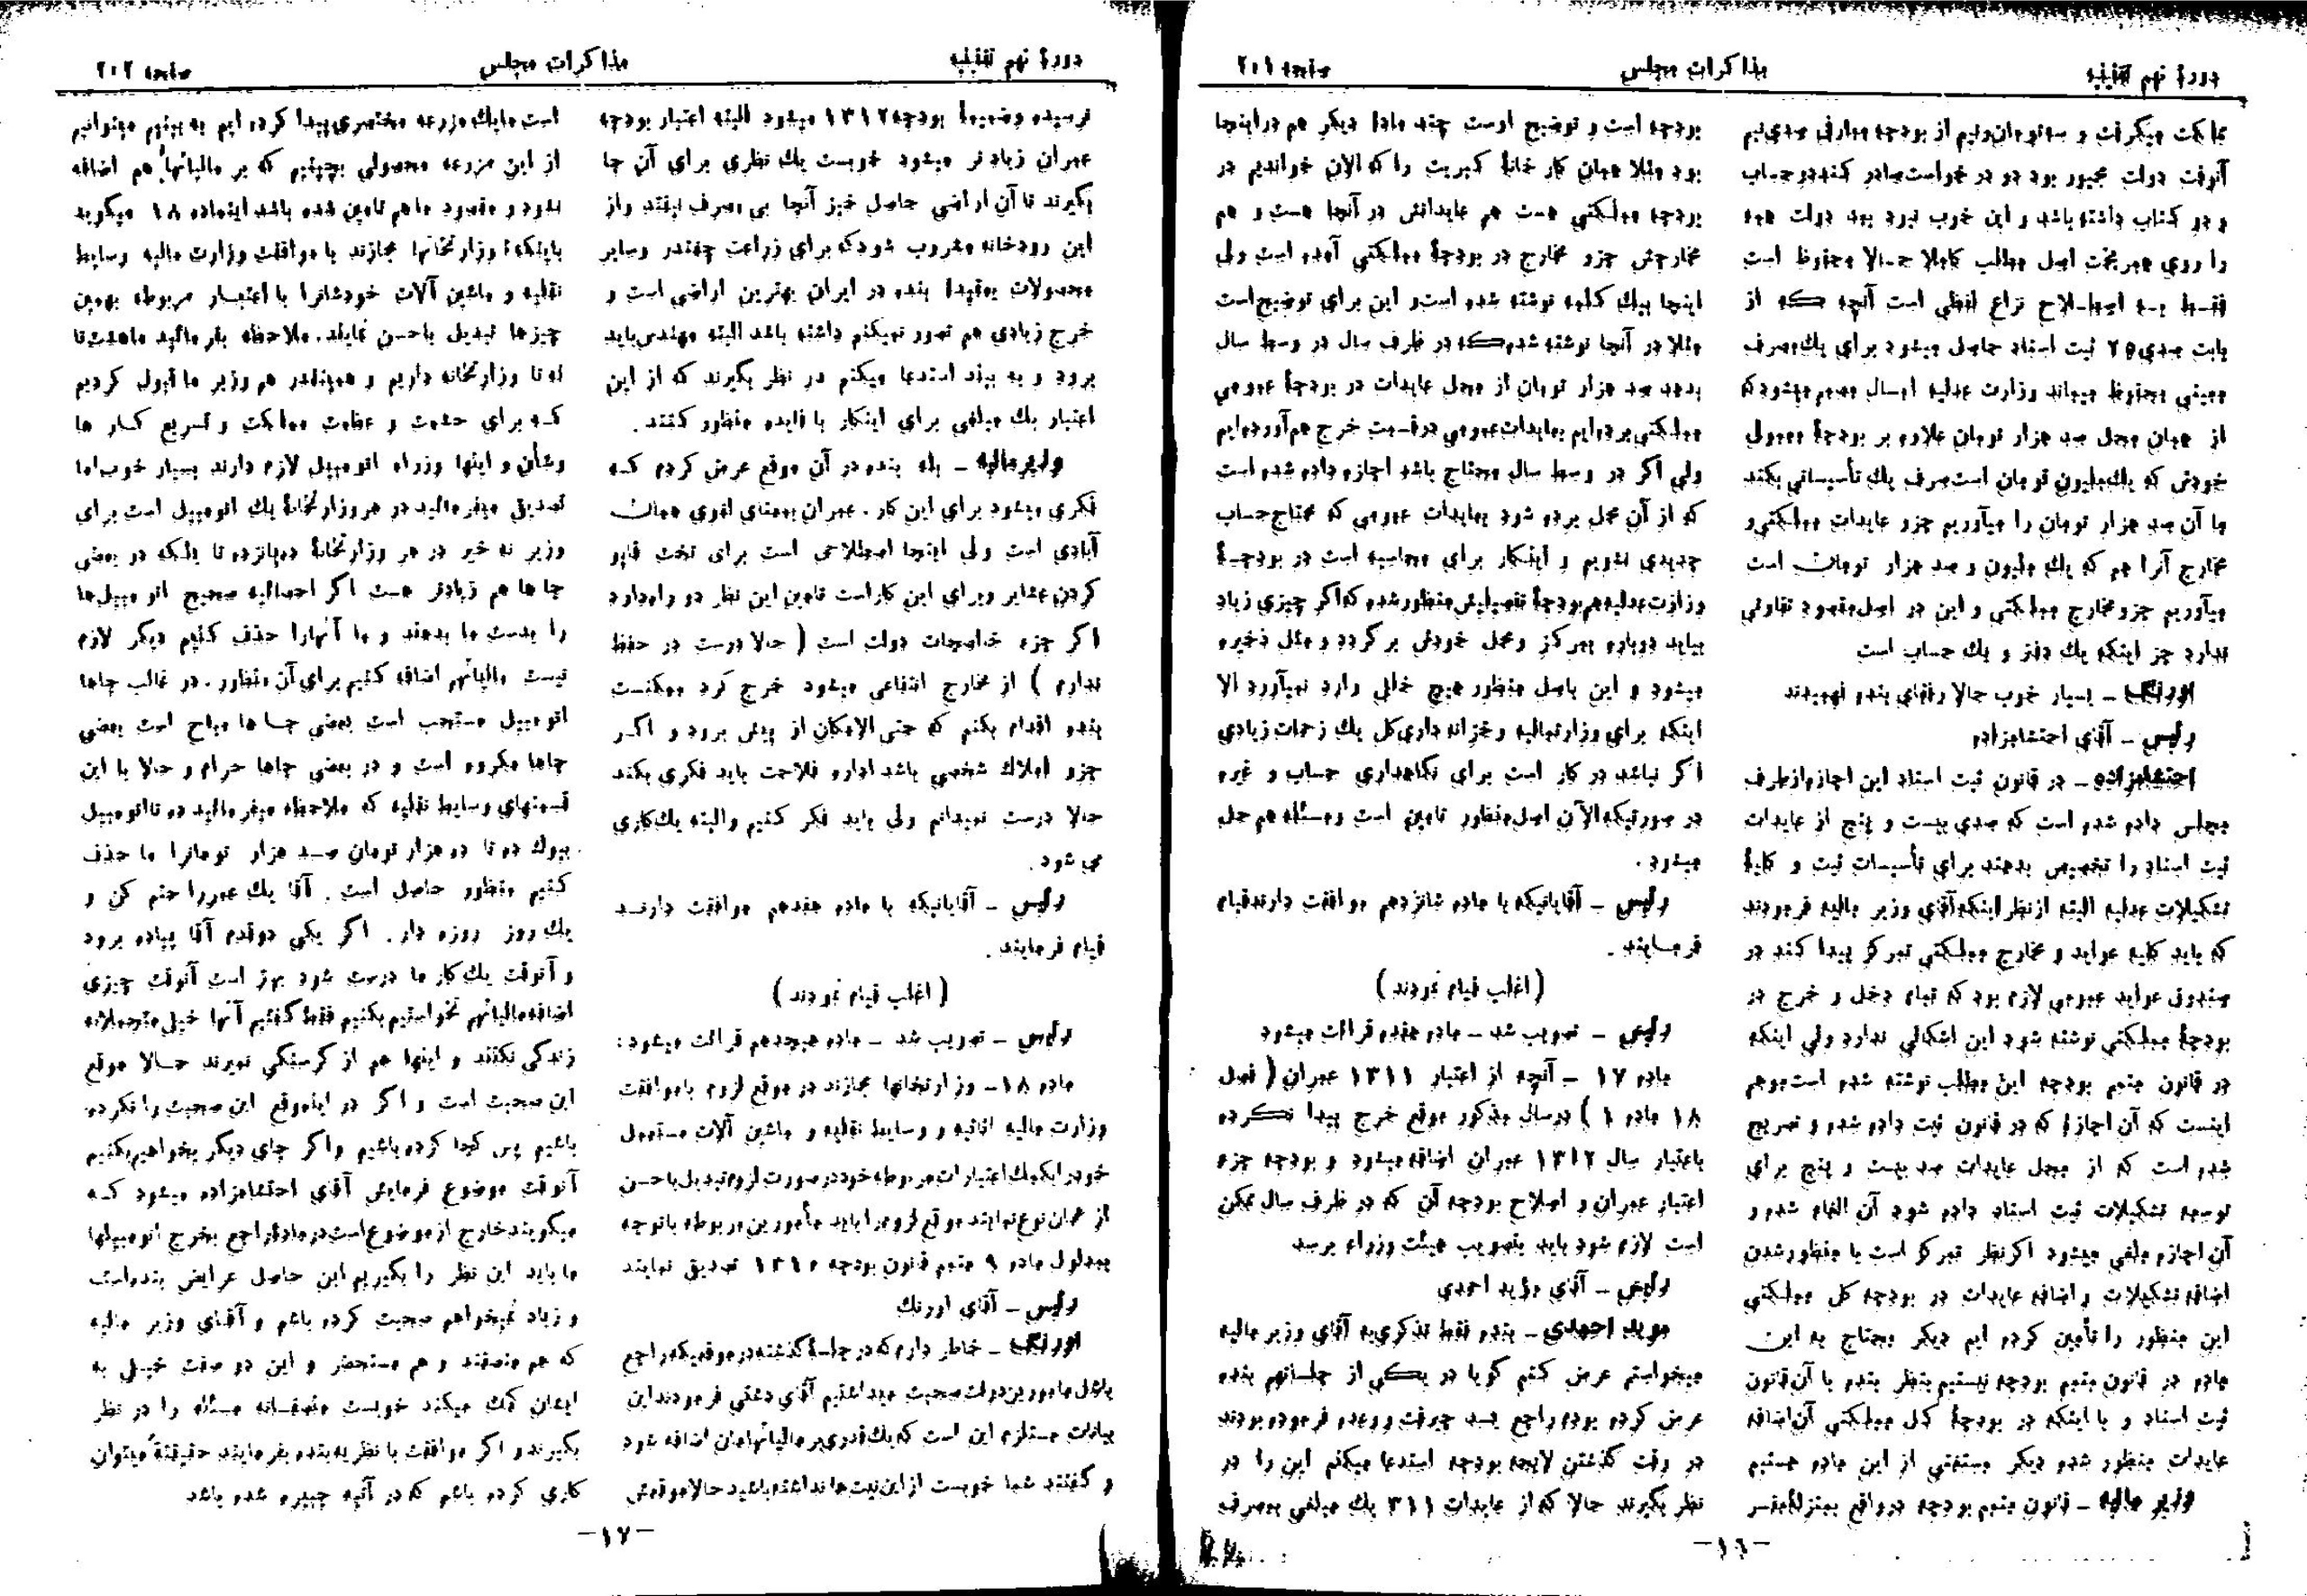 دورهٔ نهم تقنینیه
مذاکرات مجلس
صفحه ۲۰۱
مملکت میگرفت و سه تومان و نیم از بودجه معارفی صدی نیم
آنوقت دولت مجبور بود دو در خواست صادر کند دو حساب
و دو کتاب داشته باشد و این خوب نبود بعد دولت همه
را روی هم ریخت اصل مطلب کاملا حالا محفوظ است
فقط به اصطلاح نزاع لفظی است آنچه که از
بابت صدی ۲۵ ثبت اسناد حاصل میشود برای یک مصرف
معینی محفوظ میماند وزارت عدلیه امسال مصمم میشود که
از همان محل صد هزار تومان علاوه بر بودجهٔ معمولی
خودش که یک ملیون تومان است صرف یک تأسیساتی بکند
ما آن صد هزار تومان را میآوریم جزو عایدات مملکتی و
مخارج آنرا هم که یک ملیون و صد هزار تومان است
میآوریم جزو مخارج مملکتی و این در اصل مقصود تفاوتی
ندارد جز اینکه یک دفتر و یک حساب است
اورنگ – بسیار خوب حالا رفقای بنده فهمیدند
رئیس – آقای احتشامزاده
احتشامزاده – در قانون ثبت اسناد این اجازه از طرف
مجلس داده شده است که صدی بیست و پنج از عایدات
ثبت اسناد را تخصیص بدهند برای تأسیسات ثبت و کلیهٔ
تشکیلات عدلیه البته از نظر اینکه آقای وزیر مالیه فرمودند
که باید کلیه عواید و مخارج مملکتی تمرکز پیدا کند در
صندوق عواید عمومی لازم بود که تمام دخل و خرج در
بودجهٔ مملکتی نوشته شود این اشکالی ندارد ولی اینکه
در قانون متمم بودجه این مطلب نوشته شده است موهم
اینست که آن اجازهٔ که در قانون ثبت داده شده و تصریح
شده است که از محل عایدات صد بیست و پنج برای
توسعه تشکیلات ثبت اسناد داده شود آن الغاء شده و
آن اجازه ملغی میشود اگر نظر تمرکز است با منظور شدن
اضافه تشکیلات و اضافه عایدات در بودجه کل مملکتی
این منظور را تأمین کرده ایم دیگر محتاج به این
ماده در قانون متمم بودجه نیستیم بنظر بنده با آن قانون
ثبت اسناد و با اینکه در بودجهٔ کل مملکتی آن اضافه
عایدات منظور شده دیگر مستغنی از این ماده هستیم
وزیر مالیه – قانون متمم بودجه در واقع بمنزلهٔ مفسر
بودجه است و توضیح اوست چند مادهٔ دیگر هم در اینجا
بود مثلا همان کار خانهٔ کبریت را که الان خواندیم در
بودجه مملکتی هست هم عایداتش در آنجا هست و هم
مخارجش جزو مخارج در بودجهٔ مملکتی آمده است ولی
اینجا بیک کلمه نوشته شده است و این برای توضیح است
مثلا در آنجا نوشته شده که در ظرف سال در وسط سال
بدهد صد هزار تومان از محل عایدات در بودجهٔ عمومی
مملکتی برده ایم بعایدات عمومی در قسمت خرج هم آورده ایم
ولی اگر در وسط سال محتاج باشد اجازه داده شده است
که از آن محل برده شود بعایدات عمومی که محتاج حساب
جدیدی نشویم و اینکار برای محاسبه است در بودجهٔ
وزارت عدلیه هم بودجهٔ تفصیلیش منظور شده که اگر چیزی زیاد
بیاید دوباره بمرکز و محل خودش برگردد و مثل ذخیره
میشود و این باصل منظور هیچ خللی وارد نمیآورد الا
اینکه برای وزارت مالیه و خزانه داری کل یک زحمات زیادی
اگر نباشد در کار است برای نگاهداری حساب و غیره
در صورتیکه الآن اصل منظور تامین است و مسئله هم حل
میشود.
رئیس – آقایانیکه با ماده شانزدهم موافقت دارند قیام
فرمایند.
(اغلب قیام نمودند)
رئیس – تصویب شد – ماده هفده قرائت میشود
ماده ۱۷ – آنچه از اعتبار ۱۳۱۱ عمران ( فصل
۱۸ ماده ۱ ) در سال مذکور موقع خرج پیدا نکرده
باعتبار سال ۱۳۱۲ عمران اضافه میشود و بودجه جزء
اعتبار عمران و اصلاح بودجه آن که در ظرف سال ممکن
است لازم شود باید بتصویب هیئت وزراء برسد
رئیس – آقای مؤید احمدی
موید احمدی – بنده فقط تذکری به آقای وزیر مالیه
میخواستم عرض کنم گویا در یکی از جلساتهم بنده
عرض کرده بودم راجع بسد جیرفت و وعده فرموده بودند
در وقت گذشتن لایحه بودجه استدعا میکنم این را در
نظر بگیرند حالا که از عایدات ۳۱۱ یک مبلغی بمصرف
–۱۶–
دورهٔ نهم تقنینیه
مذاکرات مجلس
صفحه ۲۰۲
نرسیده و ضمیمهٔ بودجه ۱۳۱۲ میشود البته اعتبار بودجه
عمران زیادتر میشود خوبست یک نظری برای آن جا
بگیرند تا آن اراضی حاصل خیز آنجا بی مصرف نیفتد و از
این رودخانه مشروب شود که برای زراعت چغندر و سایر
محصولات بعقیدهٔ بنده در ایران بهترین اراضی است و
خرج زیادی هم تصور نمیکنم داشته باشد البته مهندس باید
برود و به بیند استدعا میکنم در نظر بگیرند که از این
اعتبار یک مبلغی برای اینکار با فایده منظور کنند.
وزیر مالیه – بله بنده در آن موقع عرض کردم که
فکری میشود برای این کار. عمران بمعنای لغوی همان
آبادی است ولی اینجا اصطلاحی است برای تخت قاپو
کردن عشایر و برای این کار است تامین این نظر دو راه دارد
اگر جزء خالصجات دولت است ( حالا درست در حفظ
ندارم ) از مخارج انتفاعی میشود خرج کرد ممکنست
بنده اقدام بکنم که حتی الامکان از پیش برود و اگر
جزو املاک شخصی باشد اداره فلاحت باید فکری بکند
حالا درست نمیدانم ولی باید فکر کنیم و البته یک کاری
می شود.
رئیس – آقایانیکه با ماده هفدهم موافقت دارند
قیام فرمایند.
(اغلب قیام نمودند)
رئیس – تصویب شد – ماده هیجدهم قرائت میشود:
ماده ۱۸– وزارتخانها مجازند در موقع لزوم با موافقت
وزارت مالیه اثاثیه و وسایط نقلیه و ماشین آلات مستعمل
خود را بکمک اعتبارات مربوطه خود در صورت لزوم تبدیل باحسن
از همان نوع نمایند موقع لزوم را باید مأمورین مربوطه با توجه
بمدلول ماده ۹ متمم قانون بودجه ۱۳۱۰ تصدیق نمایند
رئیس – آقای اورنگ
اورنگ – خاطر دارم که در جلسهٔ گذشته در موقعیکه راجع
باشل مامورین دولت صحبت میداشتیم آقای دشتی فرمودند این
بیانات مستلزم این است که یک قدری بر مالیاتهامان اضافه شود
و گفتند شما خوبست از این نیت ها نداشته باشید حالا موقعش
است ما یک مزرعه مختصری پیدا کرده ایم به بینیم میتوانیم
از این مزرعه محصولی بچینیم که بر مالیاتها هم اضافه
نشود و مقصود ما هم تامین شده باشد این ماده ۱۸ میگوید
باینکه: وزارتخانها مجازند با موافقت وزارت مالیه وسایط
نقلیه و ماشین آلات خودشانرا با اعتبار مربوطه بهمین
چیزها تبدیل باحسن نمایند. ملاحظه بفرمائید ما هشت تا
نه تا وزارتخانه داریم و همینقدر هم وزیر ما قبول کردیم
که برای حشمت و عظمت مملکت و تسریع کار ها
و شأن و اینها وزراء اتومبیل لازم دارند بسیار خوب اما
تصدیق میفرمائید در هر وزارتخانهٔ یک اتومبیل است برای
وزیر نه خیر در هر وزارتخانهٔ ده پانزده تا بلکه در بعضی
جا ها هم زیادتر هست اگر احصائیه صحیح اتومبیل ها
را بدست ما بدهند و ما آنهارا حذف کنیم دیگر لازم
نیست مالیاتهم اضافه کنیم برای آن منظور. در غالب جاها
اتومبیل مستحب است بعضی جا ها مباح است بعضی
جاها مکروه است و در بعضی جاها حرام و حالا با این
قسمتهای وسایط نقلیه که ملاحظه میفرمائید ده تا اتومبیل
بیوک ده تا ده هزار تومان صد هزار تومانرا ما حذف
کنیم منظور حاصل است. آقا یک عمر را ختم کن و
یک روز روزه دار. اگر یکی دو قدم آقا پیاده برود
و آنوقت یک کار ما درست شود بهتر است آنوقت چیزی
اضافه مالیاتهم نخواستیم بکنیم فقط گفتیم آنها خیلی متجملانه
زندگی نکنند و اینها هم از گرسنگی نمیرند حالا موقع
این صحبت است و اگر در این موقع این صحبت را نکرده
باشیم پس کجا کرده باشیم و اگر جای دیگر بخواهیم بکنیم
آنوقت موضوع فرمایش آقای احتشامزاده میشود که
میگویند خارج از موضوع است در مادهٔ راجع بخرج اتومبیلها
ما باید این نظر را بگیریم این حاصل عرایض بنده است
و زیاد نمیخواهم صحبت کرده باشم و آقای وزیر مالیه
که هم منصفند و هم مستحضر و این دو صفت خیلی به
ایشان کمک میکند خوبست منصفانه مسئله را در نظر
بگیرند و اگر موافقت با نظریه بنده بفرمایند حقیقتهٔ میتوان
کاری کرده باشم که در آتیه جبیره شده باشد
–۱۷–